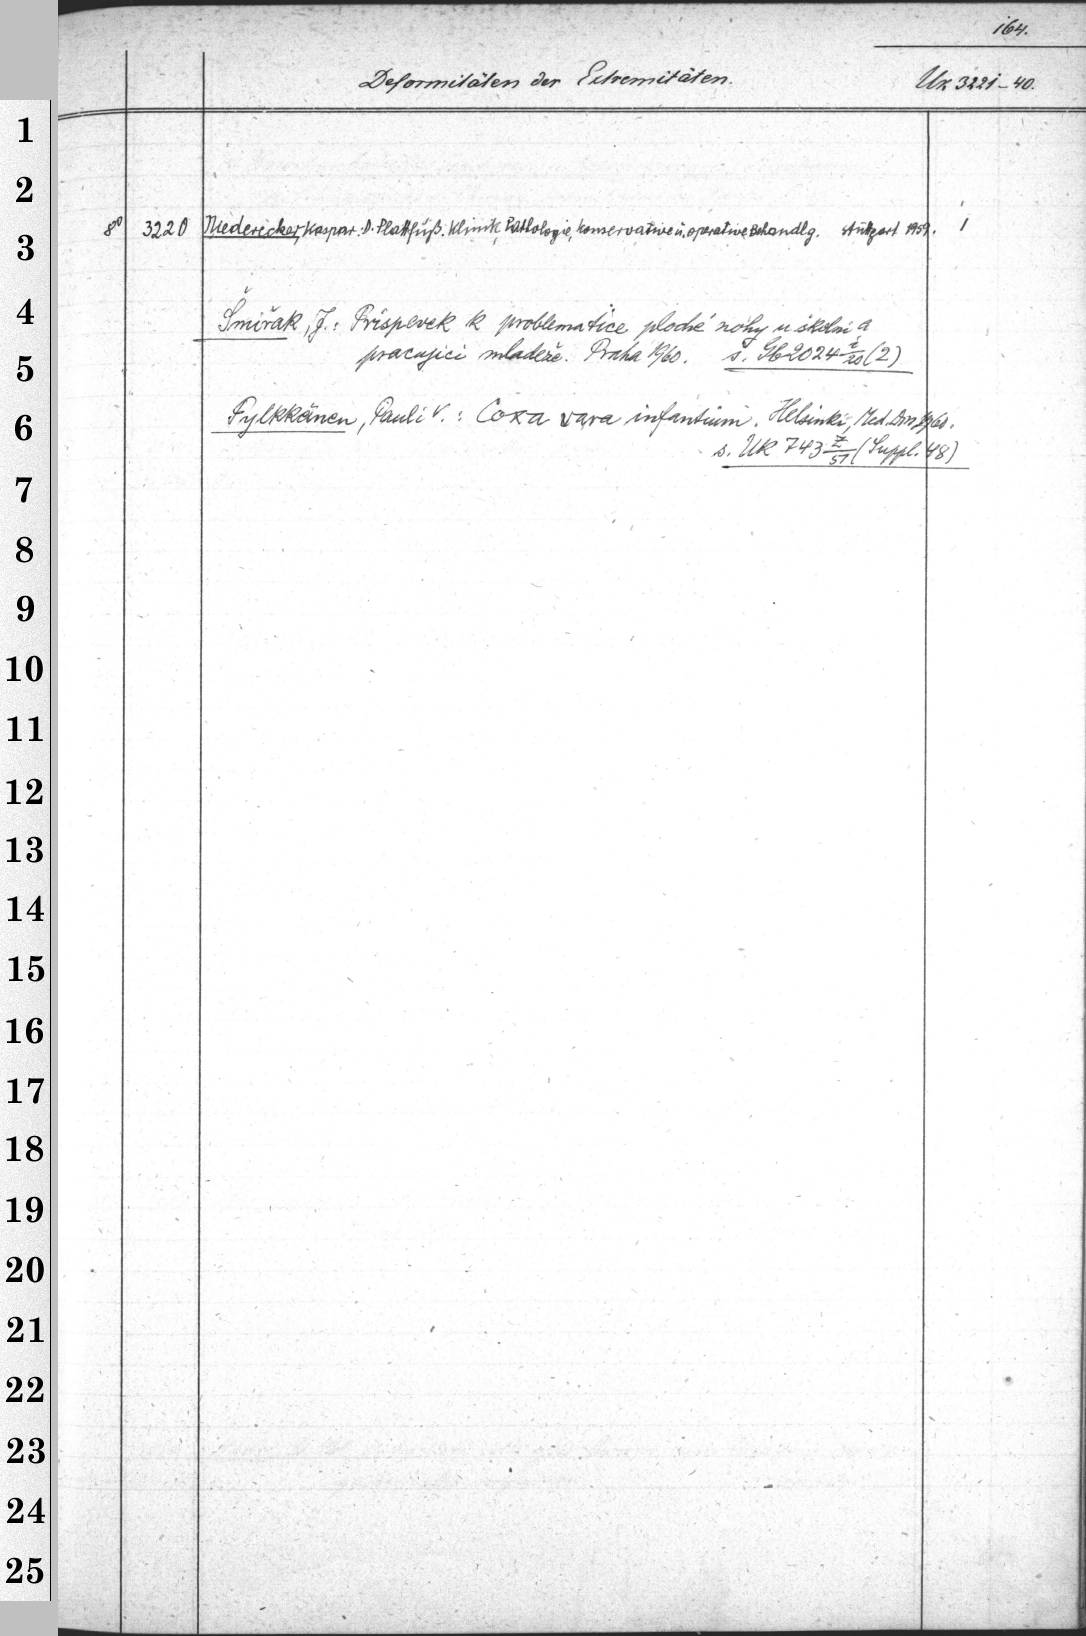 164.
Deformitäten der Extremitäten. Ux 3221-40.
8° 3220 Niederecker, Kaspar: D. Plattfuß. Klinik, Pathologie, konservative u. operative Behandlg. Stuttgart 1959. 1
Šmiřák, J.: Príspevek k problematice ploché nohy u školní a
pracující mládeže. Praha 1960. s. Gb 2024 i/20 (2)
Pylkkänen, Pauli V.: Coxa vara infantum. Helsinki, Med. Diss. 1960.
s. UK 743 Z/51 (Suppl. 48)
1
2
3
4
5
6
7
8
9
10
11
12
13
14
15
16
17
18
19
20
21
22
23
24
25